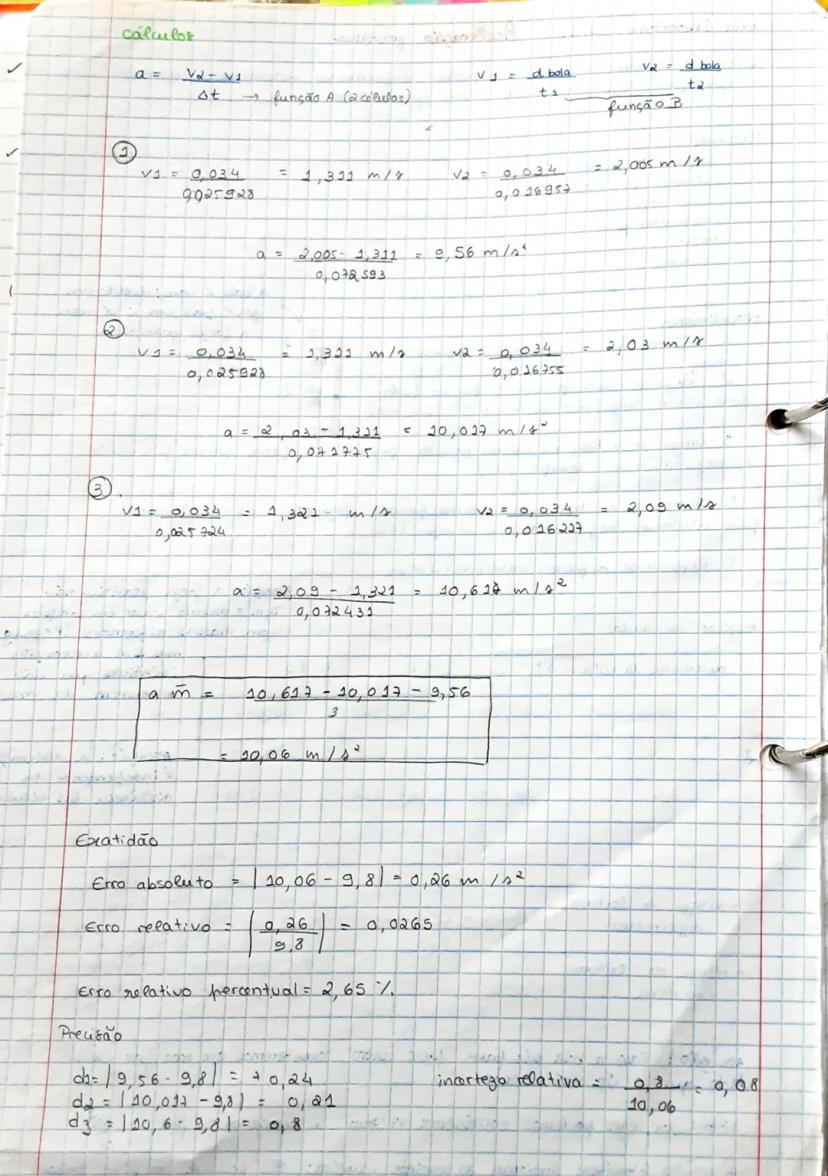 cálculos
a = V2 - V1 / Δt → função A (2 células)
V1 = d bola / t1 V2 = d bola / t2
função B
①
V1 = 0,034 / 0,025928 = 1,311 m/s V2 = 0,034 / 0,016957 = 2,005 m/s
a = 2,005 - 1,311 / 0,072593 = 9,56 m/s²
②
V1 = 0,034 / 0,025928 = 1,311 m/s V2 = 0,034 / 0,016755 = 2,03 m/s
a = 2,03 - 1,311 / 0,071775 = 10,017 m/s²
③
V1 = 0,034 / 0,025724 = 1,321 m/s V2 = 0,034 / 0,016227 = 2,09 m/s
a = 2,09 - 1,321 / 0,072431 = 10,617 m/s²
a m̄ = 10,617 - 10,017 - 9,56 / 3
= 10,06 m/s²
Exatidão
Erro absoluto = |10,06 - 9,8| = 0,26 m/s²
Erro relativo = |0,26 / 9,8| = 0,0265
Erro relativo percentual = 2,65 %.
Precisão
d1 = |9,56 - 9,8| = + 0,24 incerteza relativa = 0,8 / 10,06 = 0,08
d2 = |10,017 - 9,8| = 0,21
d3 = |10,6 - 9,8| = 0,8